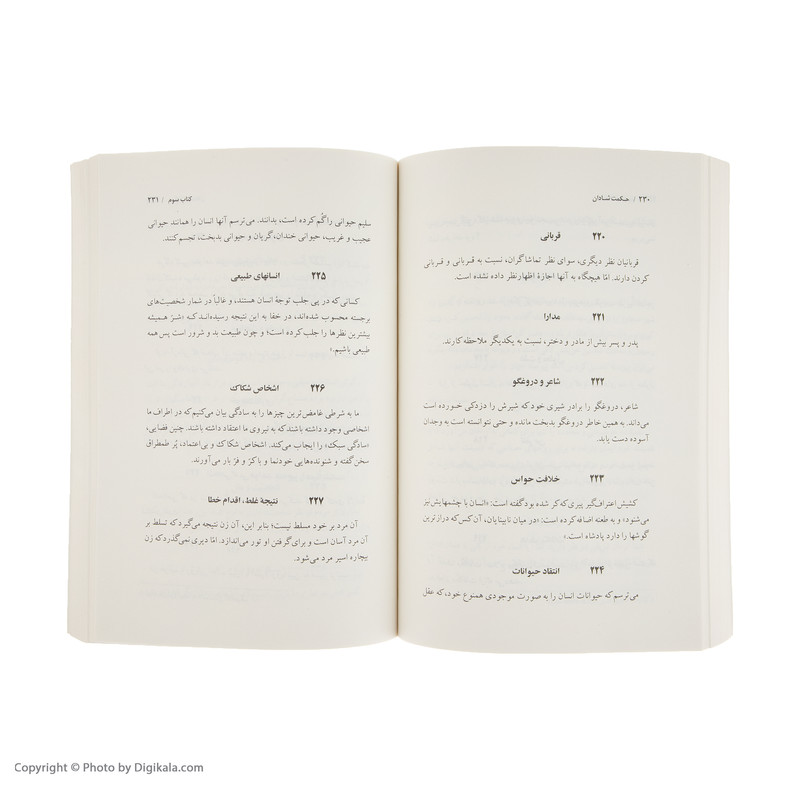 ۲۳۰ / حکمت شادان
۲۲۰ قربانی
قربانیان نظر دیگری، سوای نظر تماشاگران، نسبت به قربانی و قربانی
کردن دارند. امّا هیچگاه به آنها اجازهٔ اظهارنظر داده نشده است.
۲۲۱ مدارا
پدر و پسر بیش از مادر و دختر، نسبت به یکدیگر ملاحظه‌کارند.
۲۲۲ شاعر و دروغگو
شاعر، دروغگو را برادر شیری خود که شیرش را دزدکی خورده است
می‌داند. به همین خاطر دروغگو بدبخت مانده و حتی نتوانسته است به وجدان
آسوده دست یابد.
۲۲۳ خلافت حواس
کشیش اعتراف‌گیر پیری که کر شده بود گفته است: «انسان با چشمهایش نیز
می‌شنود» و به طعنه اضافه کرده است: «در میان نابینایان، آن کس که درازترین
گوشها را دارد پادشاه است.»
۲۲۴ انتقاد حیوانات
می‌ترسم که حیوانات انسان را به صورت موجودی همنوع خود، که عقل
کتاب سوم / ۲۳۱
سلیم حیوانی را گم کرده است، بدانند. می‌ترسم آنها انسان را همانند حیوانی
عجیب و غریب، حیوانی خندان، گریان و حیوانی بدبخت، تجسم کنند.
۲۲۵ انسانهای طبیعی
کسانی که در پی جلب توجهٔ انسان هستند، و غالباً در شمار شخصیت‌های
برجسته محسوب شده‌اند، در خفا به این نتیجه رسیده‌اند که «شرّ همیشه
بیشترین نظرها را جلب کرده است؛ و چون طبیعت بد و شرور است پس همه
طبیعی باشیم.»
۲۲۶ اشخاص شکاک
ما به شرطی غامض‌ترین چیزها را به سادگی بیان می‌کنیم که در اطراف ما
اشخاصی وجود داشته باشند که به نیروی ما اعتقاد داشته باشند. چنین فضایی،
«سادگی سبک» را ایجاب می‌کند. اشخاص شکاک و بی‌اعتماد، پُر طمطراق
سخن گفته و شنونده‌هایی خودنما و با کرّ و فرّ بار می‌آورند.
۲۲۷ نتیجهٔ غلط، اقدام خطا
آن مرد بر خود مسلط نیست؛ بنابر این، آن زن نتیجه می‌گیرد که تسلط بر
آن مرد آسان است و برای گرفتن او تور می‌اندازد. امّا دیری نمی‌گذرد که زن
بیچاره اسیر مرد می‌شود.
Copyright © Photo by Digikala.com